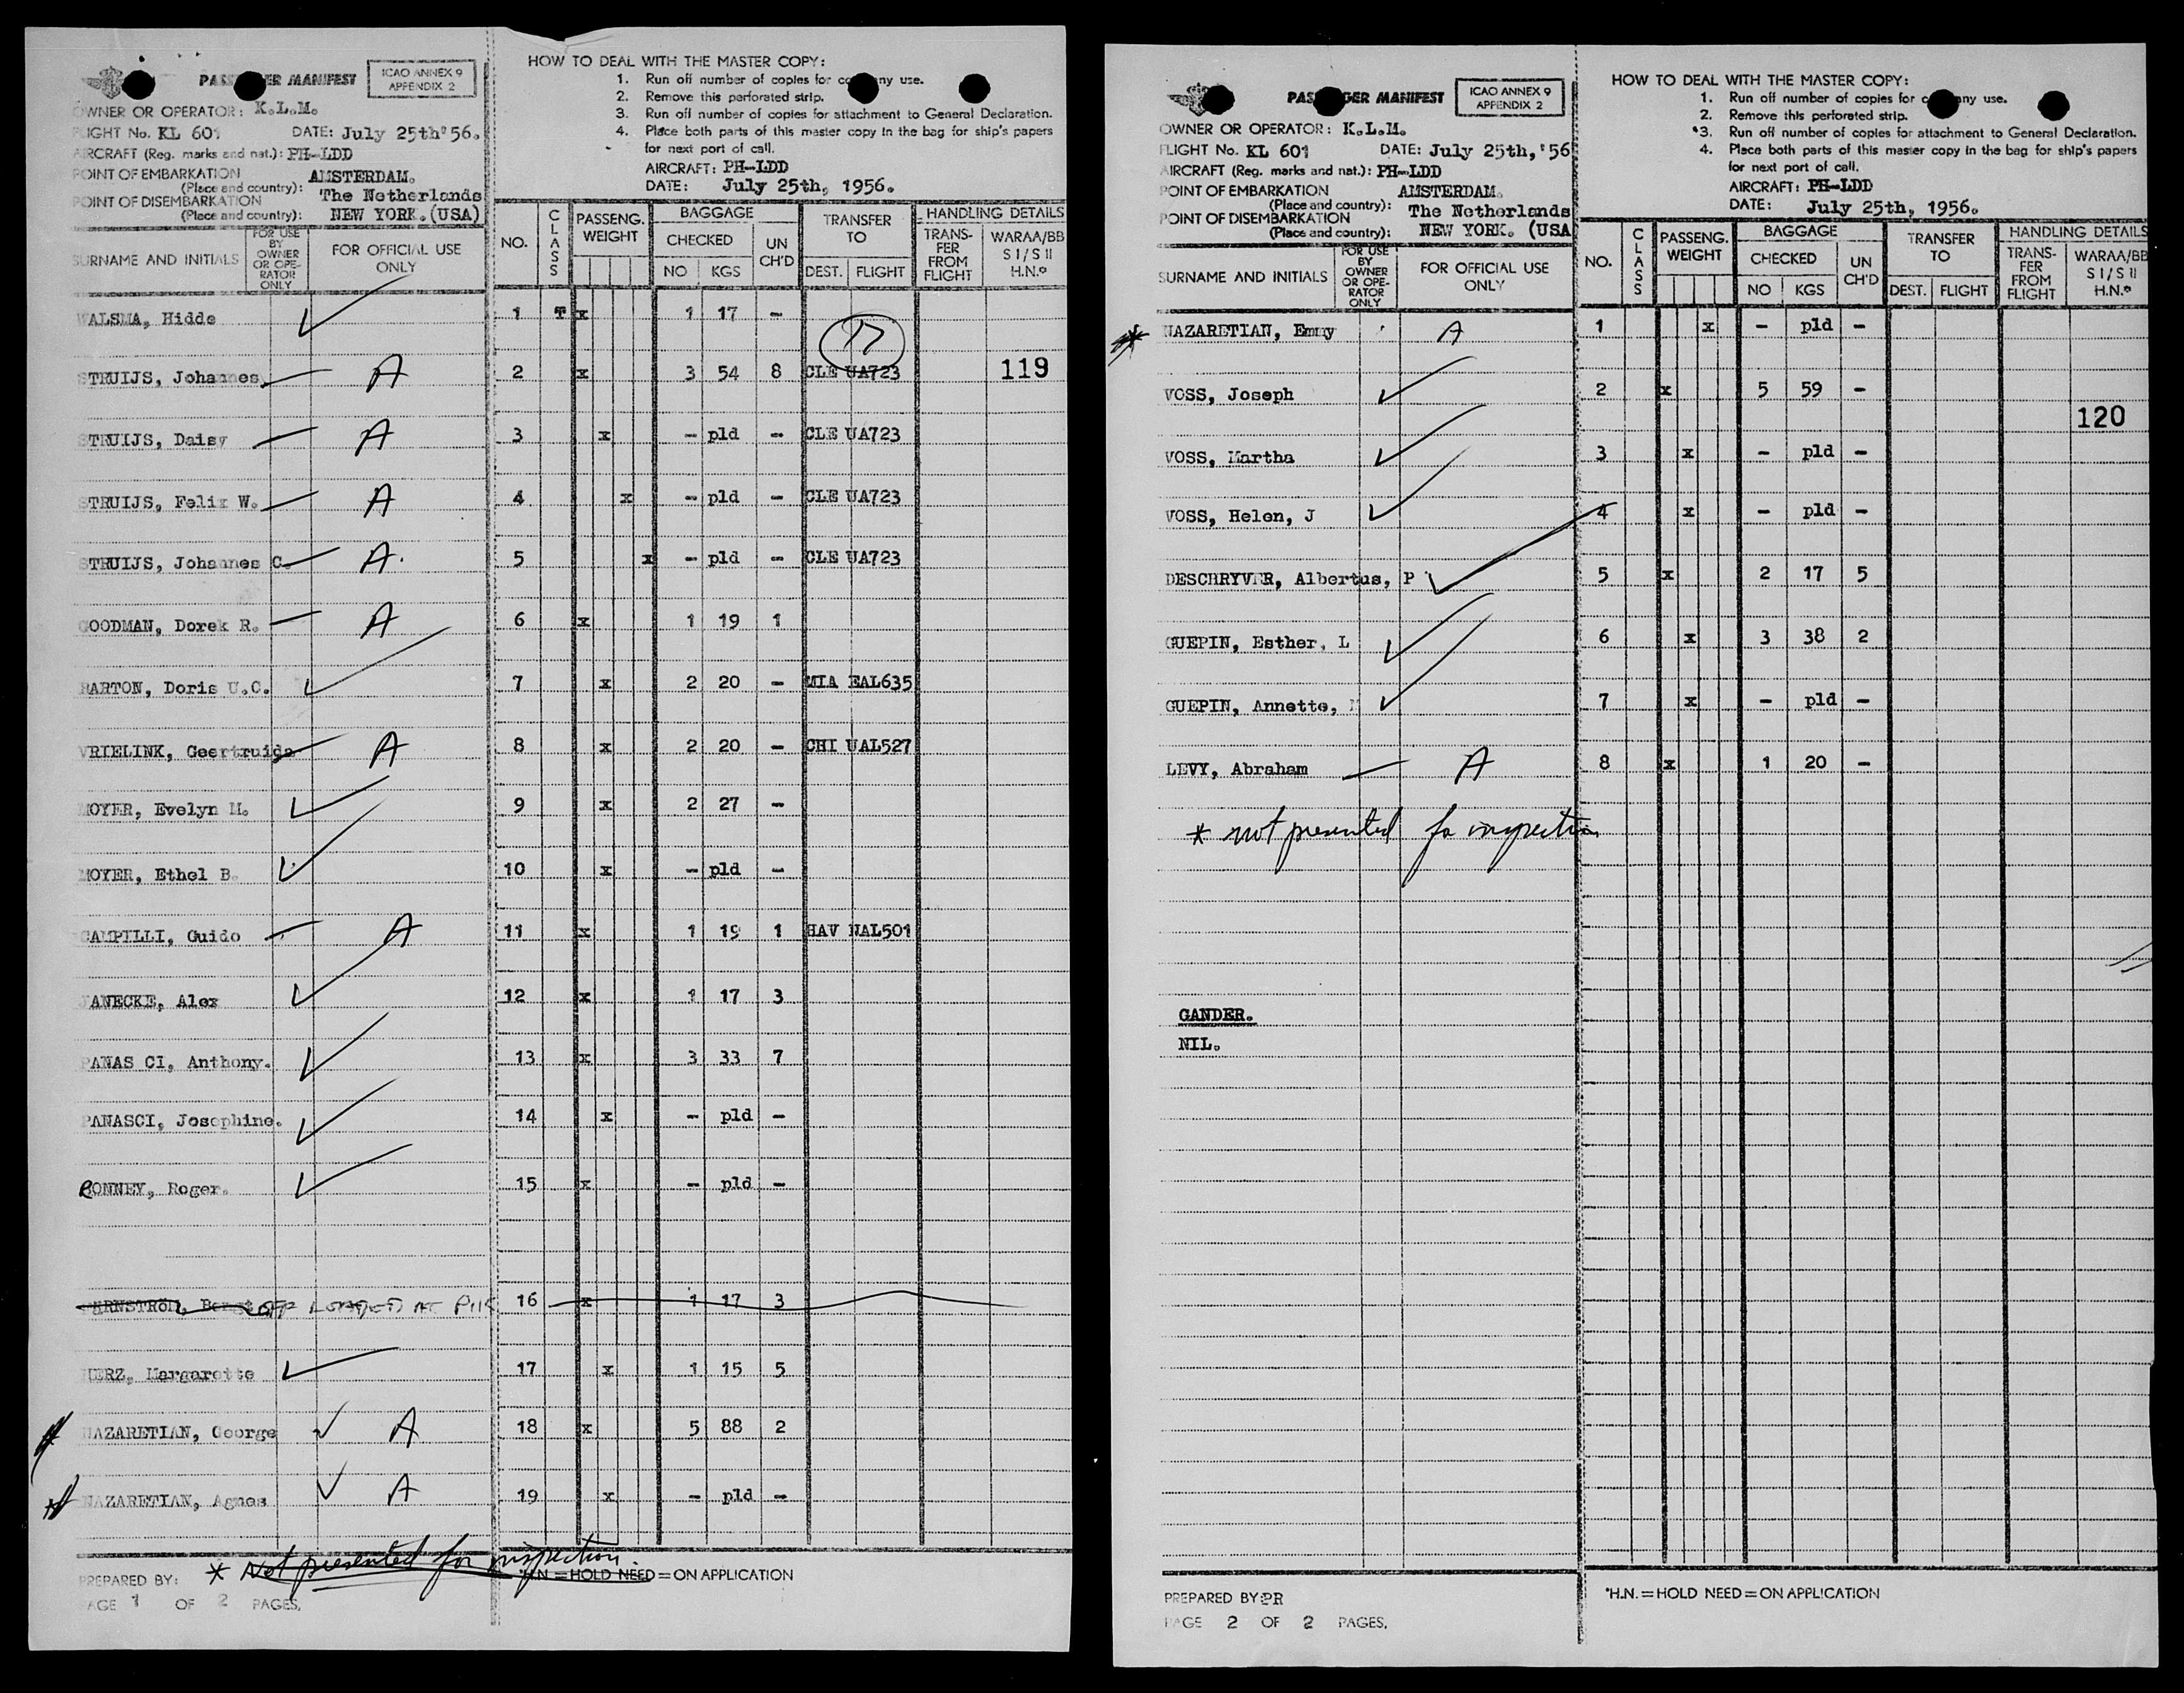 PASSENGER MANIFEST
ICAO ANNEX 9
APPENDIX 2
OWNER OR OPERATOR: K.L.M.
FLIGHT No. KL 601 DATE: July 25th'56.
AIRCRAFT (Reg. marks and nat.): PH-LDD
POINT OF EMBARKATION AMSTERDAM.
(Place and country): The Netherlands
POINT OF DISEMBARKATION
(Place and country): NEW YORK.(USA)
SURNAME AND INITIALS
FOR USE BY OWNER OR OPE-RATOR ONLY
FOR OFFICIAL USE ONLY
HOW TO DEAL WITH THE MASTER COPY:
1. Run off number of copies for company use.
2. Remove this perforated strip.
3. Run off number of copies for attachment to General Declaration.
4. Place both parts of this master copy in the bag for ship's papers
for next port of call.
AIRCRAFT: PH-LDD
DATE: July 25th, 1956.
NO. CLASS PASSENG. WEIGHT BAGGAGE CHECKED NO KGS UN CH'D TRANSFER TO DEST. FLIGHT HANDLING DETAILS TRANS-FER FROM FLIGHT WARAA/BB S I/S II H.N.*
WALSMA, Hidde 1 T x 1 17 -
17
STRUIJS, Johannes A 2 x 3 54 8 CLE UA723 119
STRUIJS, Daisy A 3 x - pld - CLE UA723
STRUIJS, Felix W. A 4 x - pld - CLE UA723
STRUIJS, Johannes C. A. 5 x - pld - CLE UA723
GOODMAN, Derek R. A 6 x 1 19 1
BARTON, Doris U.C. 7 x 2 20 - MIA EAL635
VRIELINK, Geertruida A 8 x 2 20 - CHI UAL527
MOYER, Evelyn M. 9 x 2 27 -
MOYER, Ethel B. 10 x - pld -
CAMPILLI, Guido A 11 x 1 19 1 HAV NAL501
JANECKE, Alex 12 x 1 17 3
PANAS CI, Anthony. 13 x 3 33 7
PANASCI, Josephine. 14 x - pld -
BONNEY, Roger. 15 x - pld -
OFF LOADED AT PIK 16 x 1 17 3
HERZ, Margarette 17 x 1 15 5
NAZARETIAN, George A 18 x 5 88 2
NAZARETIAN, Agnes A 19 x - pld -
* Not presented for inspection.
PREPARED BY:
*H.N. = HOLD NEED = ON APPLICATION
PAGE 1 OF 2 PAGES.
PASSENGER MANIFEST
ICAO ANNEX 9
APPENDIX 2
OWNER OR OPERATOR: K.L.M.
FLIGHT No. KL 601 DATE: July 25th,'56
AIRCRAFT (Reg. marks and nat.): PH-LDD
POINT OF EMBARKATION AMSTERDAM.
(Place and country): The Netherlands
POINT OF DISEMBARKATION
(Place and country): NEW YORK. (USA
SURNAME AND INITIALS
FOR USE BY OWNER OR OPE-RATOR ONLY
FOR OFFICIAL USE ONLY
HOW TO DEAL WITH THE MASTER COPY:
1. Run off number of copies for company use.
2. Remove this perforated strip.
3. Run off number of copies for attachment to General Declaration.
4. Place both parts of this master copy in the bag for ship's papers
for next port of call.
AIRCRAFT: PH-LDD
DATE: July 25th, 1956.
NO. CLASS PASSENG. WEIGHT BAGGAGE CHECKED NO KGS UN CH'D TRANSFER TO DEST. FLIGHT HANDLING DETAILS TRANS-FER FROM FLIGHT WARAA/BB S I/S II H.N.*
* NAZARETIAN, Emmy A 1 x - pld -
VOSS, Joseph 2 x 5 59 -
120
VOSS, Martha 3 x - pld -
VOSS, Helen, J 4 x - pld -
DESCHRYVER, Albertus, P 5 x 2 17 5
GUEPIN, Esther, L 6 x 3 38 2
GUEPIN, Annette, 7 x - pld -
LEVY, Abraham A 8 x 1 20 -
* not presented for inspection
GANDER.
NIL.
PREPARED BY: PR
*H.N. = HOLD NEED = ON APPLICATION
PAGE 2 OF 2 PAGES.